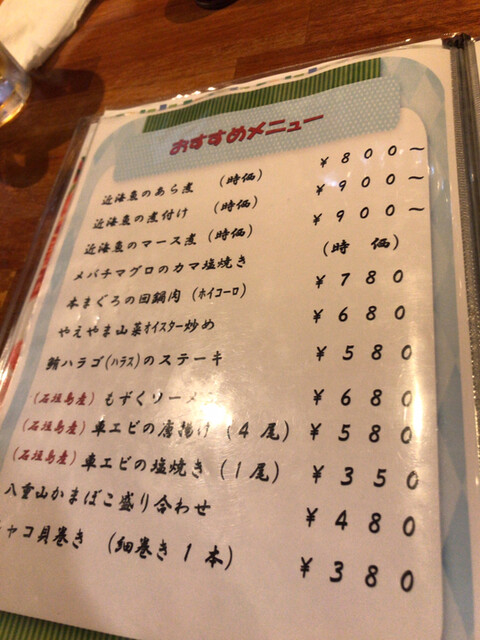 おすすめメニュー
近海魚のあら煮 (時価) ¥800~
近海魚の煮付け (時価) ¥900~
近海魚のマース煮 (時価) ¥900~
メバチマグロのカマ塩焼き (時 価)
本まぐろの回鍋肉 (ホイコーロ) ¥780
やえやま山菜オイスター炒め ¥680
鮪ハラゴ(ハラス)のステーキ ¥580
(石垣島産) もずくソーメ ¥680
(石垣島産) 車エビの唐揚げ (4尾) ¥580
(石垣島産) 車エビの塩焼き (1尾) ¥350
八重山かまぼこ盛り合わせ ¥480
ャコ貝巻き (細巻き1本) ¥380